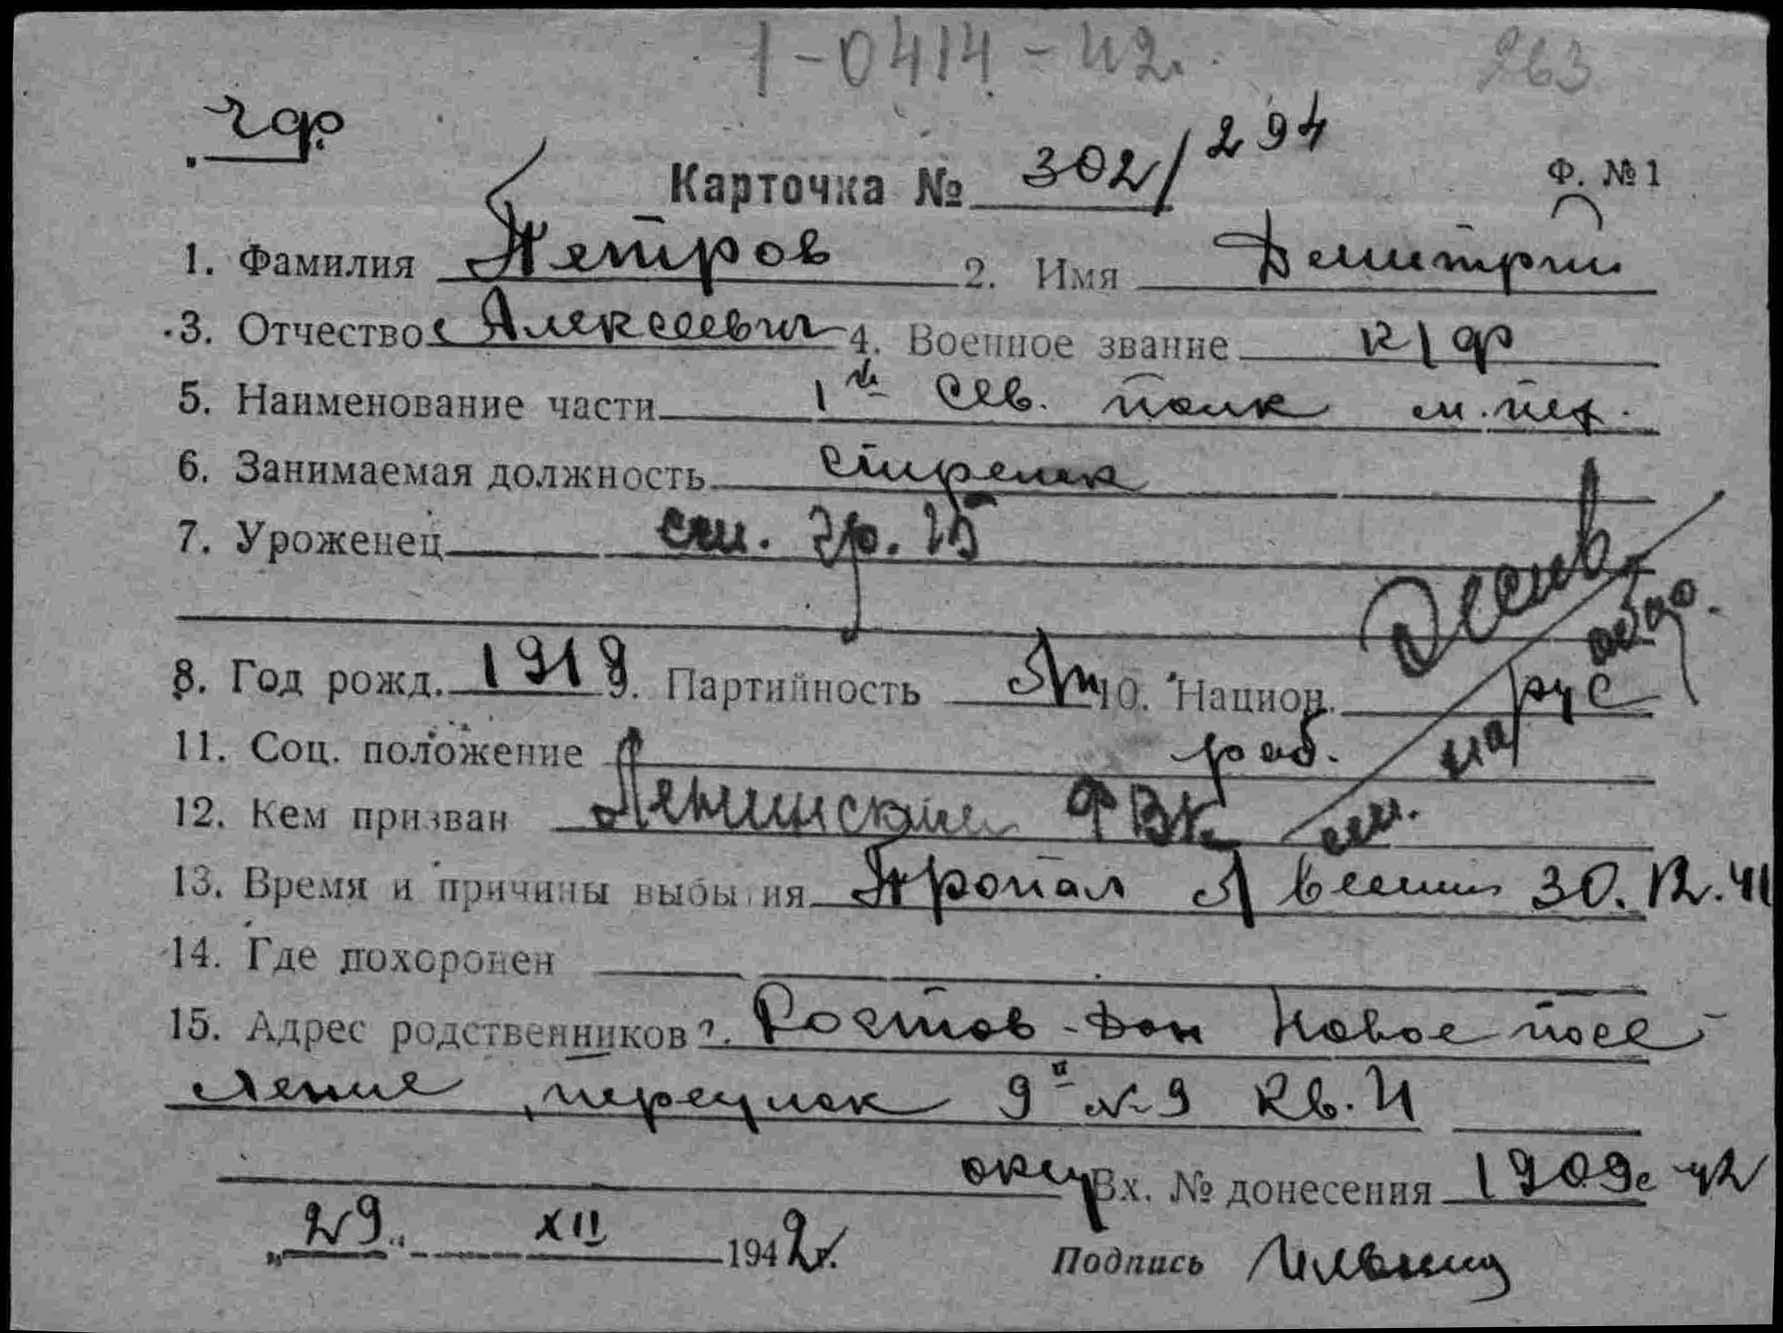 1-0414-42г.
263
чф.
Карточка № 302/294
Ф. № 1
1. Фамилия Петров 2. Имя Дмитрий
3. Отчество Алексеевич 4. Военное звание к/ф
5. Наименование части 1й Сев. полк м.пех.
6. Занимаемая должность стрелок
7. Уроженец см. гр. 15
8. Год рожд. 1919 9. Партийность б/п 10. Национ. рус
11. Соц. положение раб.
12. Кем призван Ленинским РВК
13. Время и причины выбытия Пропал б/вести 30.12.41
14. Где похоронен
15. Адрес родственников г. Ростов-Дон Новое посе-
ление, переулок 9й № 9 кв. 4
Вх. № донесения 1909с 42
"29" XII 1942г.
Подпись